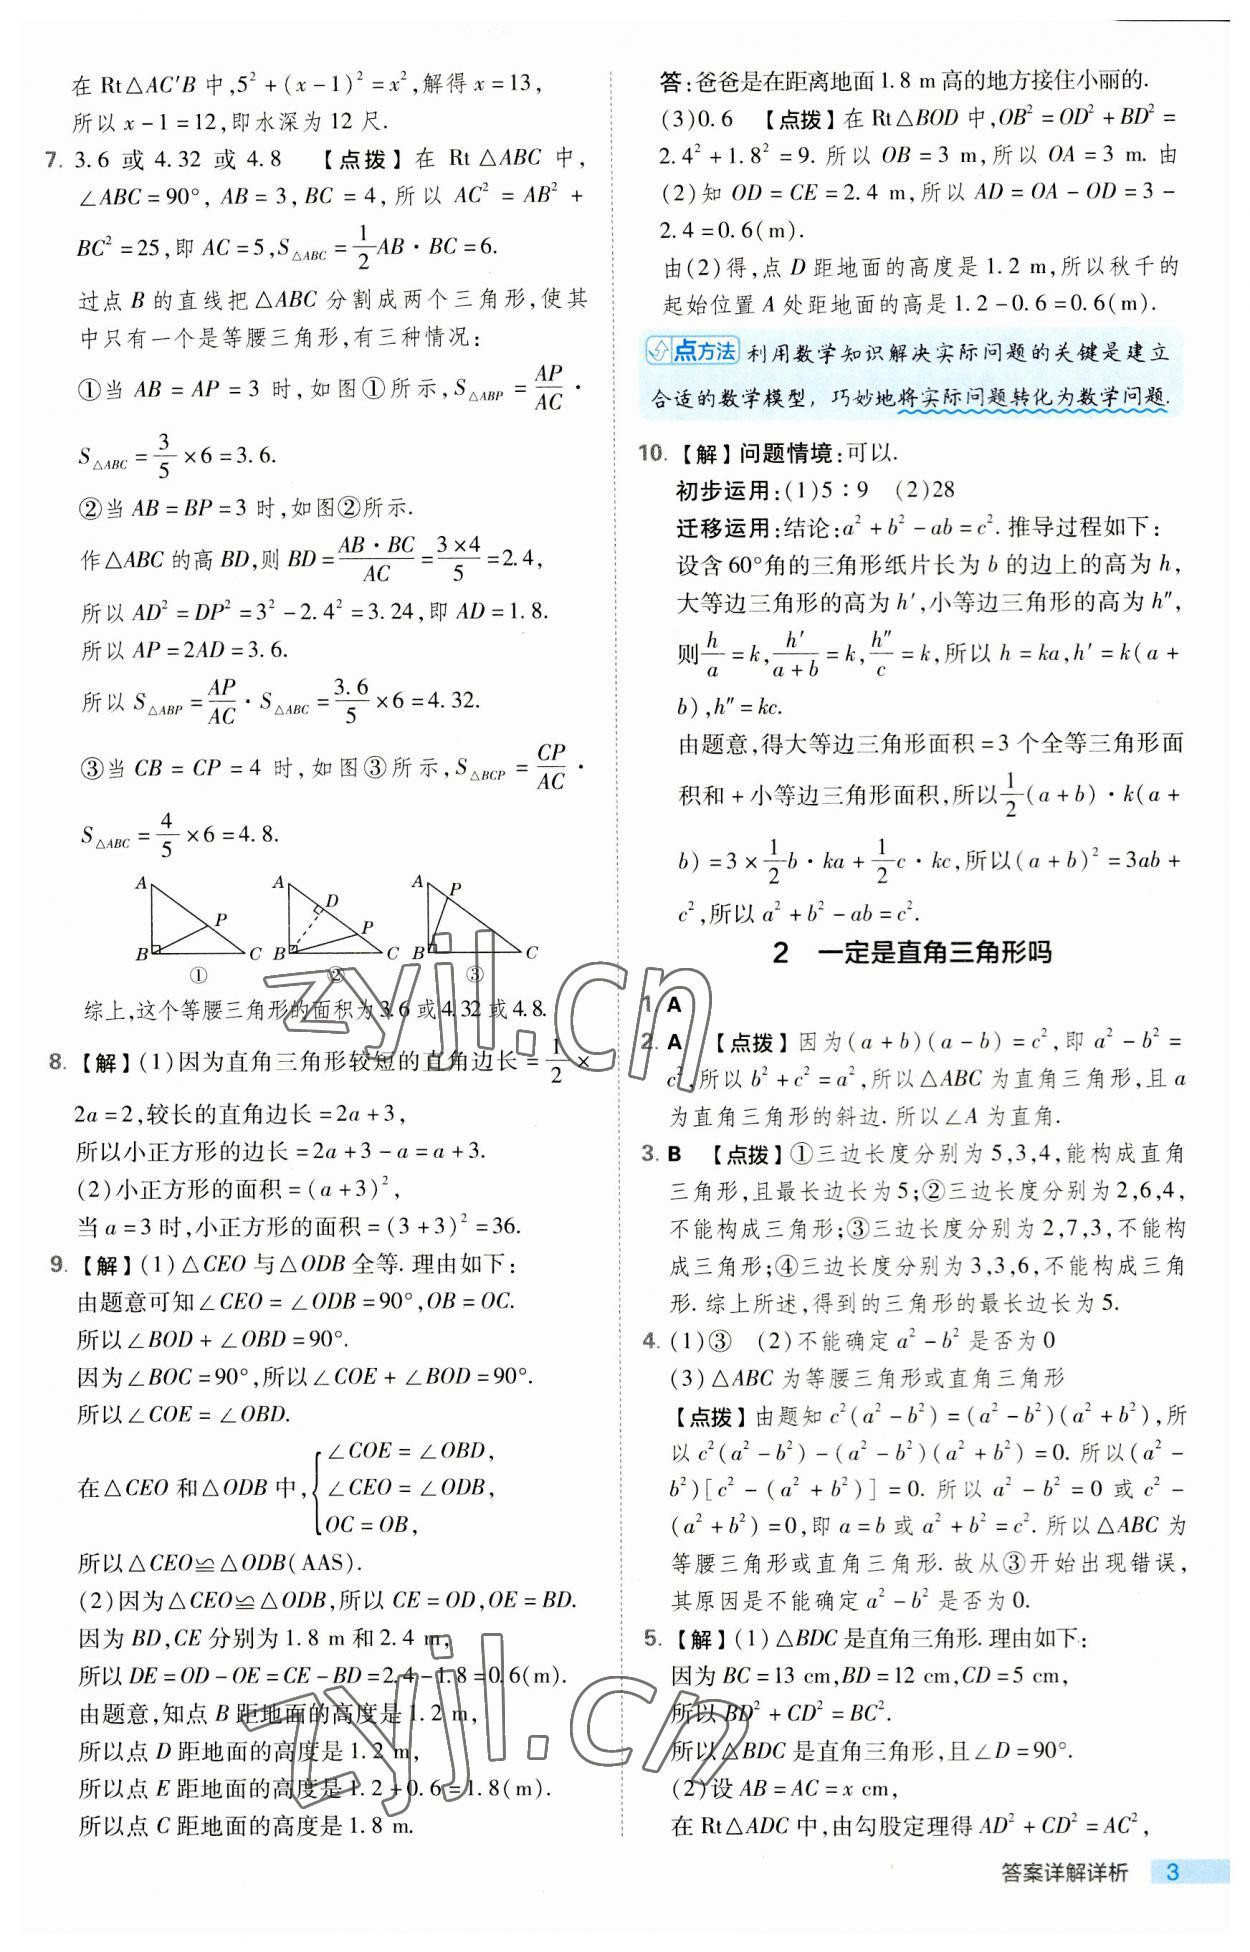 在 Rt△AC′B 中,5²+(x-1)²=x²,解得 x=13,
所以 x-1=12,即水深为 12 尺.
7. 3.6 或 4.32 或 4.8 【点拨】在 Rt△ABC 中,
∠ABC=90°, AB=3, BC=4, 所以 AC²=AB²+
BC²=25,即 AC=5,S△ABC=1/2 AB·BC=6.
过点 B 的直线把△ABC 分割成两个三角形,使其
中只有一个是等腰三角形,有三种情况:
①当 AB=AP=3 时,如图①所示,S△ABP=AP/AC·
S△ABC=3/5×6=3.6.
②当 AB=BP=3 时,如图②所示.
作△ABC 的高 BD,则 BD=AB·BC/AC=3×4/5=2.4,
所以 AD²=DP²=3²-2.4²=3.24,即 AD=1.8.
所以 AP=2AD=3.6.
所以 S△ABP=AP/AC·S△ABC=3.6/5×6=4.32.
③当 CB=CP=4 时,如图③所示,S△BCP=CP/AC·
S△ABC=4/5×6=4.8.
A P B C ①
A D P B C ②
A P B C ③
综上,这个等腰三角形的面积为 3.6 或 4.32 或 4.8.
8. 【解】(1)因为直角三角形较短的直角边长=1/2×
2a=2,较长的直角边长=2a+3,
所以小正方形的边长=2a+3-a=a+3.
(2)小正方形的面积=(a+3)²,
当 a=3 时,小正方形的面积=(3+3)²=36.
9. 【解】(1)△CEO 与△ODB 全等.理由如下:
由题意可知∠CEO=∠ODB=90°,OB=OC.
所以∠BOD+∠OBD=90°.
因为∠BOC=90°,所以∠COE+∠BOD=90°.
所以∠COE=∠OBD.
在△CEO 和△ODB 中,{∠COE=∠OBD,
∠CEO=∠ODB,
OC=OB,
所以△CEO≌△ODB(AAS).
(2)因为△CEO≌△ODB,所以 CE=OD,OE=BD.
因为 BD,CE 分别为 1.8 m 和 2.4 m,
所以 DE=OD-OE=CE-BD=2.4-1.8=0.6(m).
由题意,知点 B 距地面的高度是 1.2 m,
所以点 D 距地面的高度是 1.2 m,
所以点 E 距地面的高度是 1.2+0.6=1.8(m).
所以点 C 距地面的高度是 1.8 m.
答:爸爸是在距离地面 1.8 m 高的地方接住小丽的.
(3)0.6 【点拨】在 Rt△BOD 中,OB²=OD²+BD²=
2.4²+1.8²=9. 所以 OB=3 m,所以 OA=3 m. 由
(2)知 OD=CE=2.4 m,所以 AD=OA-OD=3-
2.4=0.6(m).
由(2)得,点 D 距地面的高度是 1.2 m,所以秋千的
起始位置 A 处距地面的高是 1.2-0.6=0.6(m).
点方法 利用数学知识解决实际问题的关键是建立
合适的数学模型,巧妙地将实际问题转化为数学问题.
10. 【解】问题情境:可以.
初步运用:(1)5∶9 (2)28
迁移运用:结论:a²+b²-ab=c². 推导过程如下:
设含 60°角的三角形纸片长为 b 的边上的高为 h,
大等边三角形的高为 h′,小等边三角形的高为 h″,
则 h/a=k, h′/(a+b)=k, h″/c=k,所以 h=ka,h′=k(a+
b),h″=kc.
由题意,得大等边三角形面积=3 个全等三角形面
积和+小等边三角形面积,所以 1/2(a+b)·k(a+
b)=3×1/2 b·ka+1/2 c·kc,所以(a+b)²=3ab+
c²,所以 a²+b²-ab=c².
2 一定是直角三角形吗
1. A
2. A 【点拨】因为(a+b)(a-b)=c²,即 a²-b²=
c²,所以 b²+c²=a²,所以△ABC 为直角三角形,且 a
为直角三角形的斜边.所以∠A 为直角.
3. B 【点拨】①三边长度分别为 5,3,4,能构成直角
三角形,且最长边长为 5;②三边长度分别为 2,6,4,
不能构成三角形;③三边长度分别为 2,7,3,不能构
成三角形;④三边长度分别为 3,3,6,不能构成三角
形.综上所述,得到的三角形的最长边长为 5.
4. (1)③ (2)不能确定 a²-b² 是否为 0
(3)△ABC 为等腰三角形或直角三角形
【点拨】由题知 c²(a²-b²)=(a²-b²)(a²+b²),所
以 c²(a²-b²)-(a²-b²)(a²+b²)=0. 所以(a²-
b²)[c²-(a²+b²)]=0. 所以 a²-b²=0 或 c²-
(a²+b²)=0,即 a=b 或 a²+b²=c². 所以△ABC 为
等腰三角形或直角三角形.故从③开始出现错误,
其原因是不能确定 a²-b² 是否为 0.
5. 【解】(1)△BDC 是直角三角形.理由如下:
因为 BC=13 cm,BD=12 cm,CD=5 cm,
所以 BD²+CD²=BC².
所以△BDC 是直角三角形,且∠D=90°.
(2)设 AB=AC=x cm,
在 Rt△ADC 中,由勾股定理得 AD²+CD²=AC²,
zyjl.cn
zyjl.cn
答案详解详析 3